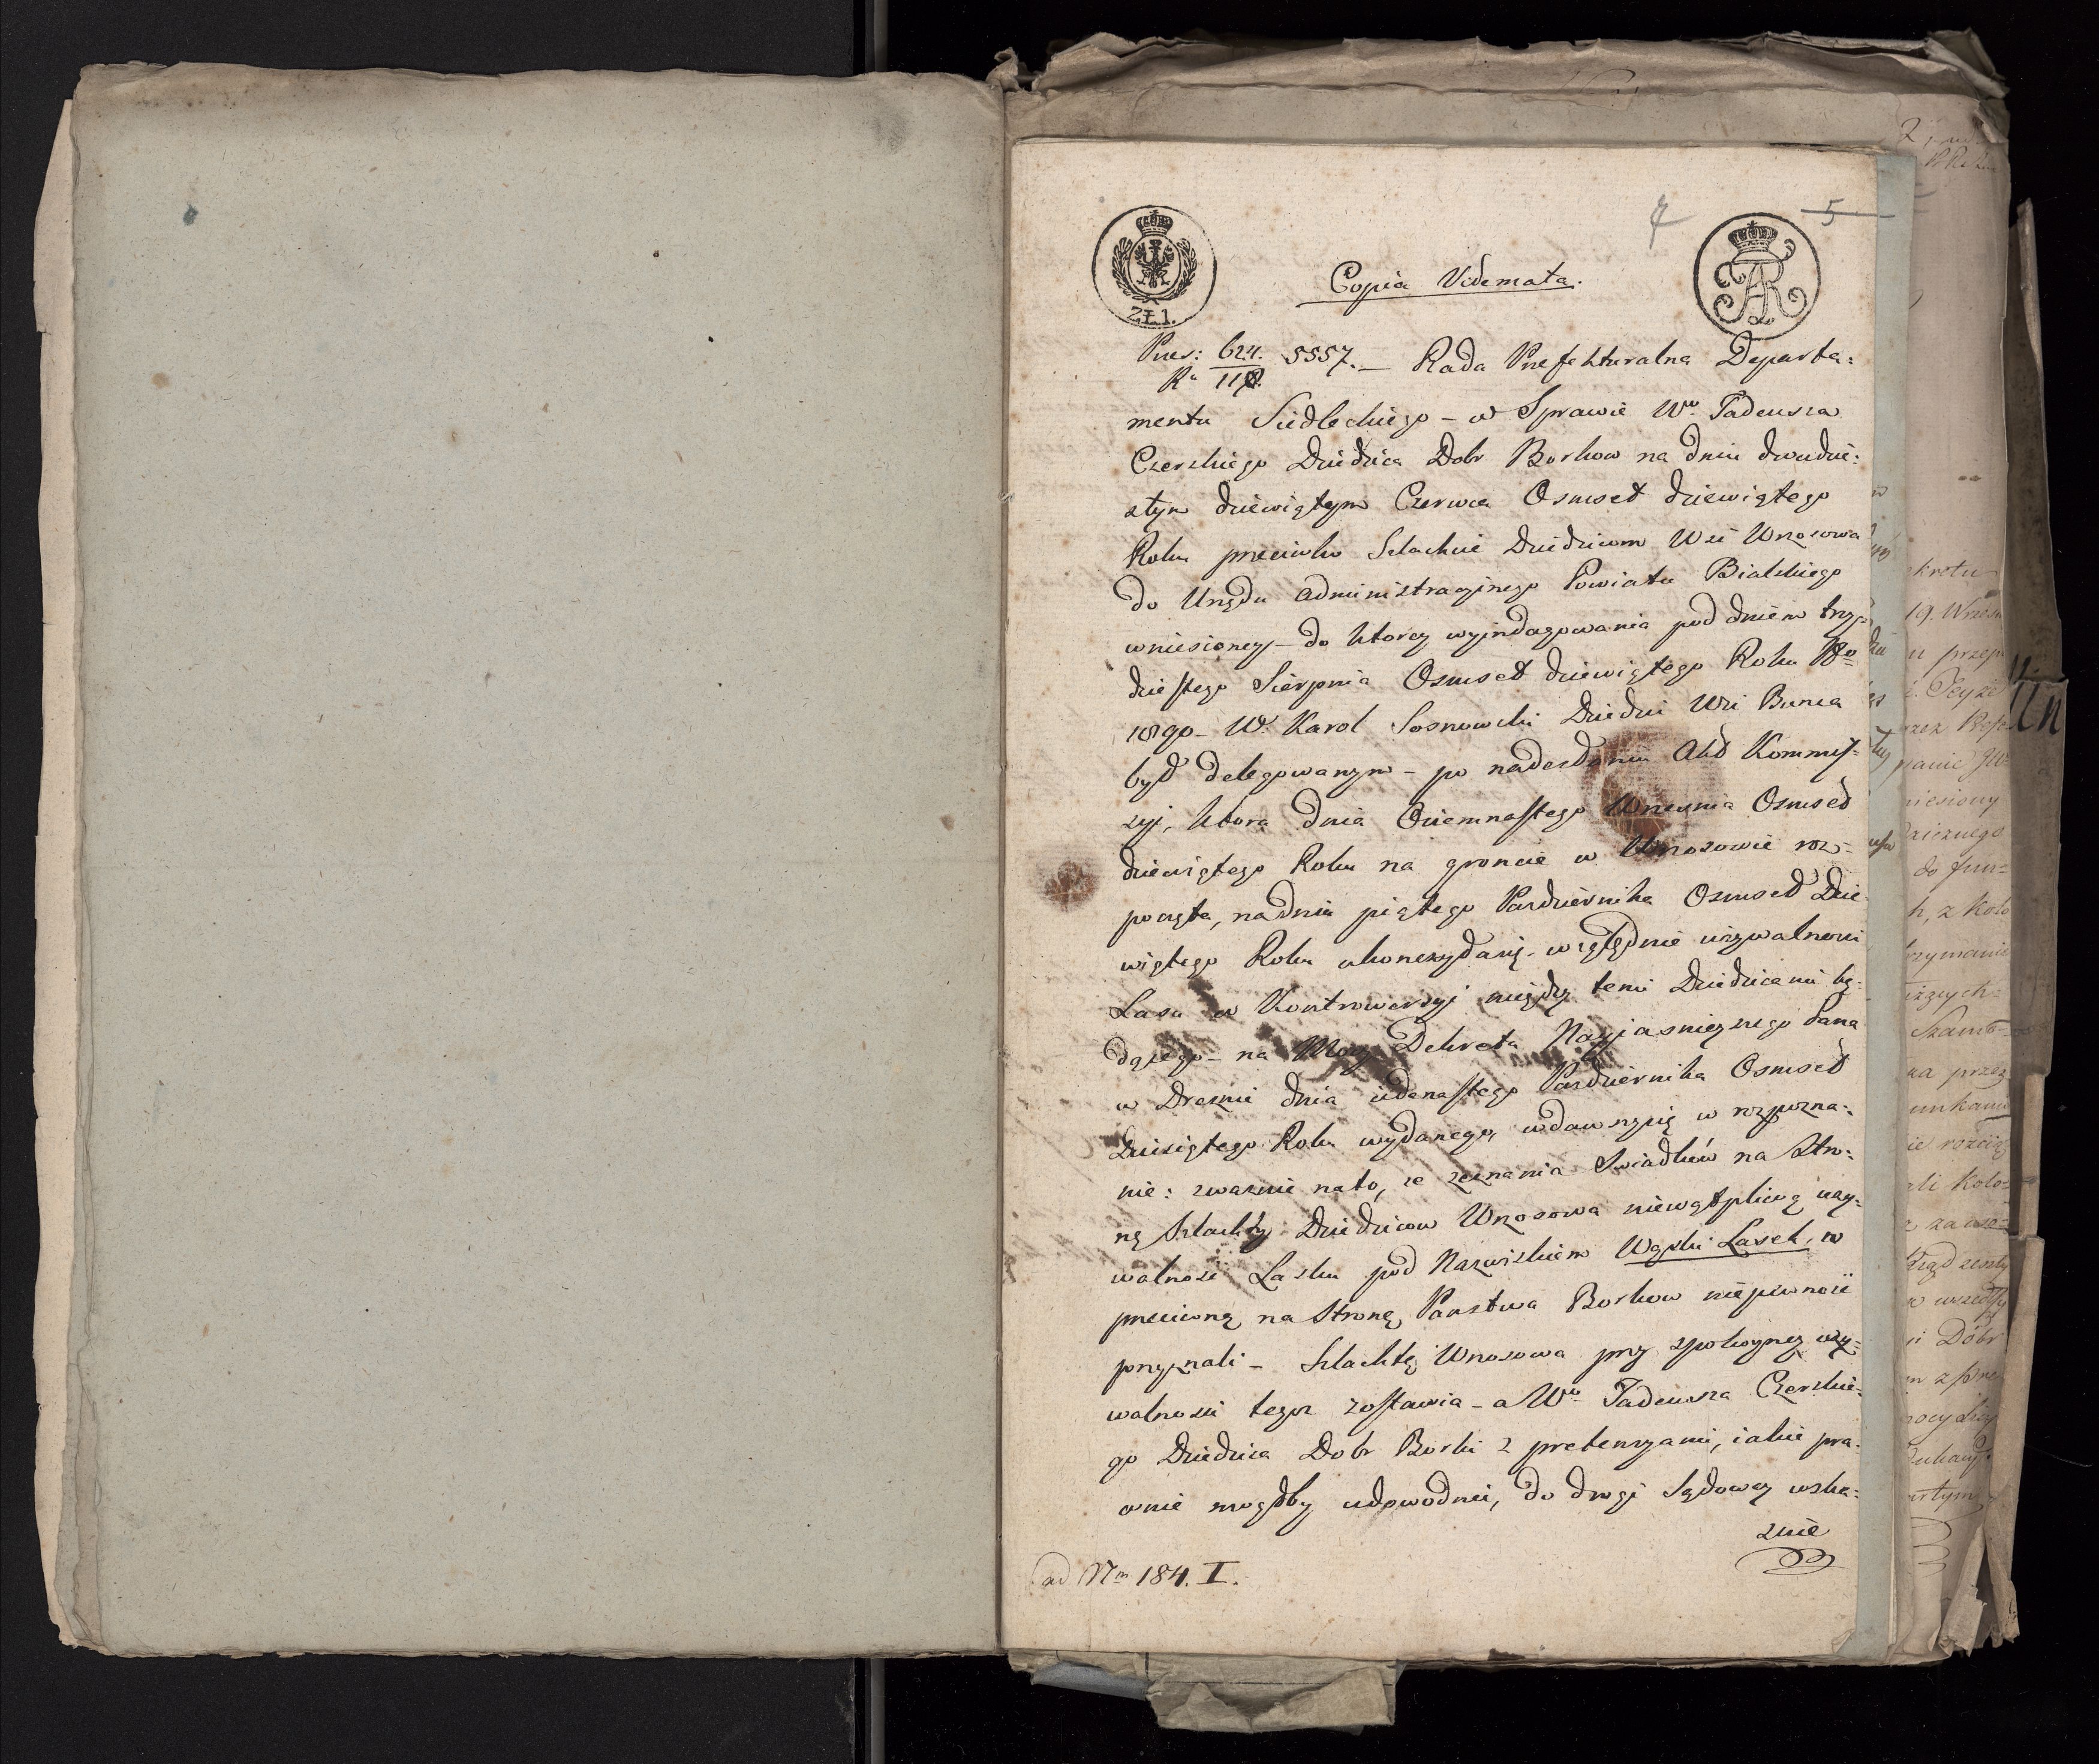 7
5
ZŁ 1.
AR
Copia Vidimata.
Pres: 624. 5557. — Rada Prefekturalna Departa:
mentu Siedleckiego – w Sprawie Wo Tadeusza
Czerskiego Dziedzica Dobr Borkow na dniu dwudzie:
stym dziewiątym Czerwca Osmset dziewiątego
Roku przeciwko Szlachcie Dziedzicom Wsi Wrzosowa
do Urzędu administracyjnego Powiatu Bialskiego
wniesioney – do ktorey wyindagowania pod dniem trzy:
dziestego Sierpnia Osmset dziewiątego Roku
1809o – W. Karol Sosnowski Dziedzic Wsi
był delegowanym – po nadesłaniu Akt Kommis:
syi, ktora dnia Osiemnastego Wrzesnia Osmset
dziewiątego Roku na groncie w Wrzosowie roz:
poczęta, na dniu piątego Pazdziernika Osmset Dzie:
wiątego Roku ukonczyła się – względnie używalnosci
Lasu w Kontrowersyi między temi Dziedzicami bę:
dącego – na Mocy Dekretu Nayjasnieyszego Pana
w Dreznie dnia iedenastego Pazdziernika Osmset
Dziesiątego Roku wydanego, wdawszy się w rozpozna:
nie: zwaznie na to, ze zeznania Swiadków na Stro:
nę Szlachty Dziedzicow Wrzosowa niewątpliwą uzy:
walnosc Lasku pod Nazwiskiem Wąski Lasek, w
przeciwną na Stronę Panstwa Borkow niepewnosc
przyznali – Szlachtę Wrzosowa przy spokoyney uzy:
walnosci tegoz zostawia – a Wo Tadeusza Czerskie:
go Dziedzica Dobr Borki z pretensyami, iakie pra:
wnie mogłby udowodnić, do drogi Sądowey wska:
zuie
ad Nm 184. I.